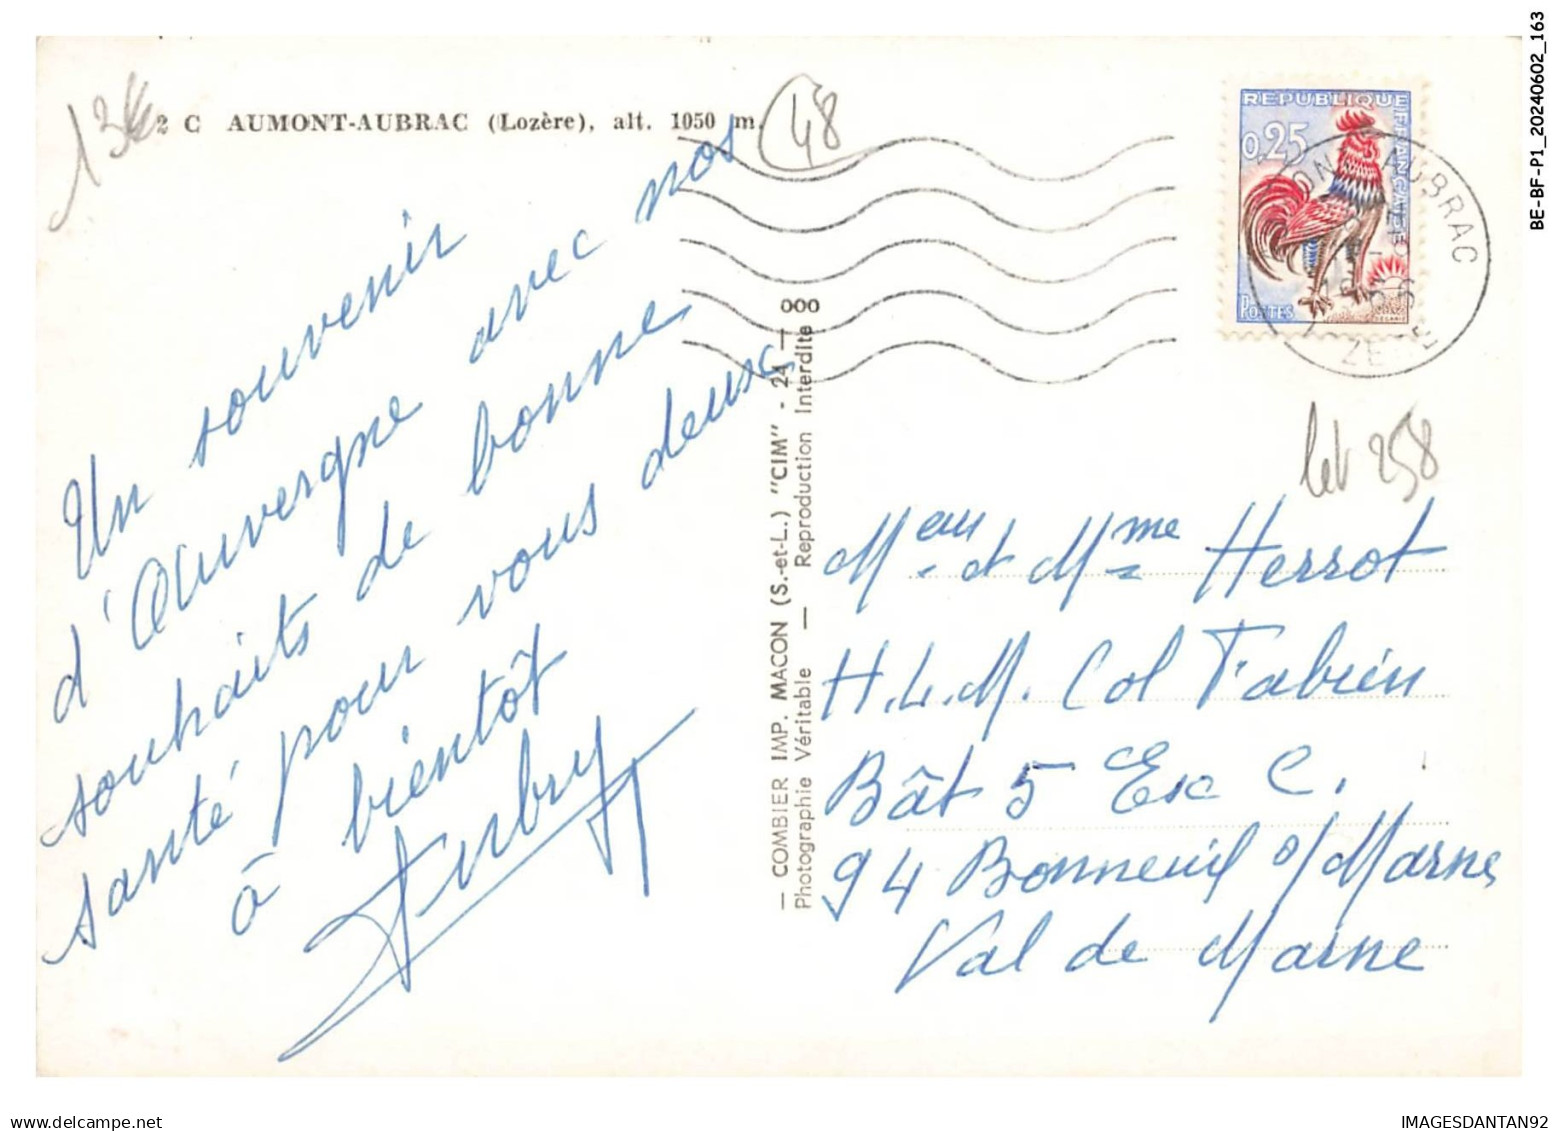 BE-BF-P1_20240602_163
2 C AUMONT-AUBRAC (Lozère), alt. 1050 m.
48
REPUBLIQUE FRANÇAISE
0,25
POSTES
AUBRAC
Un souvenir
d'Auvergne avec nos
souhaits de bonne
santé pour vous deux
à bientôt
Aubry
— COMBIER IMP. MACON (S.-et-L.) "CIM" - 24 — 000
Photographie Véritable — Reproduction Interdite
258
Meau et Mme Herrot
H.L.M. Col Fabien
Bât 5 Esc C.
94 Bonneuil s/Marne
Val de Marne
IMAGESDANTAN92